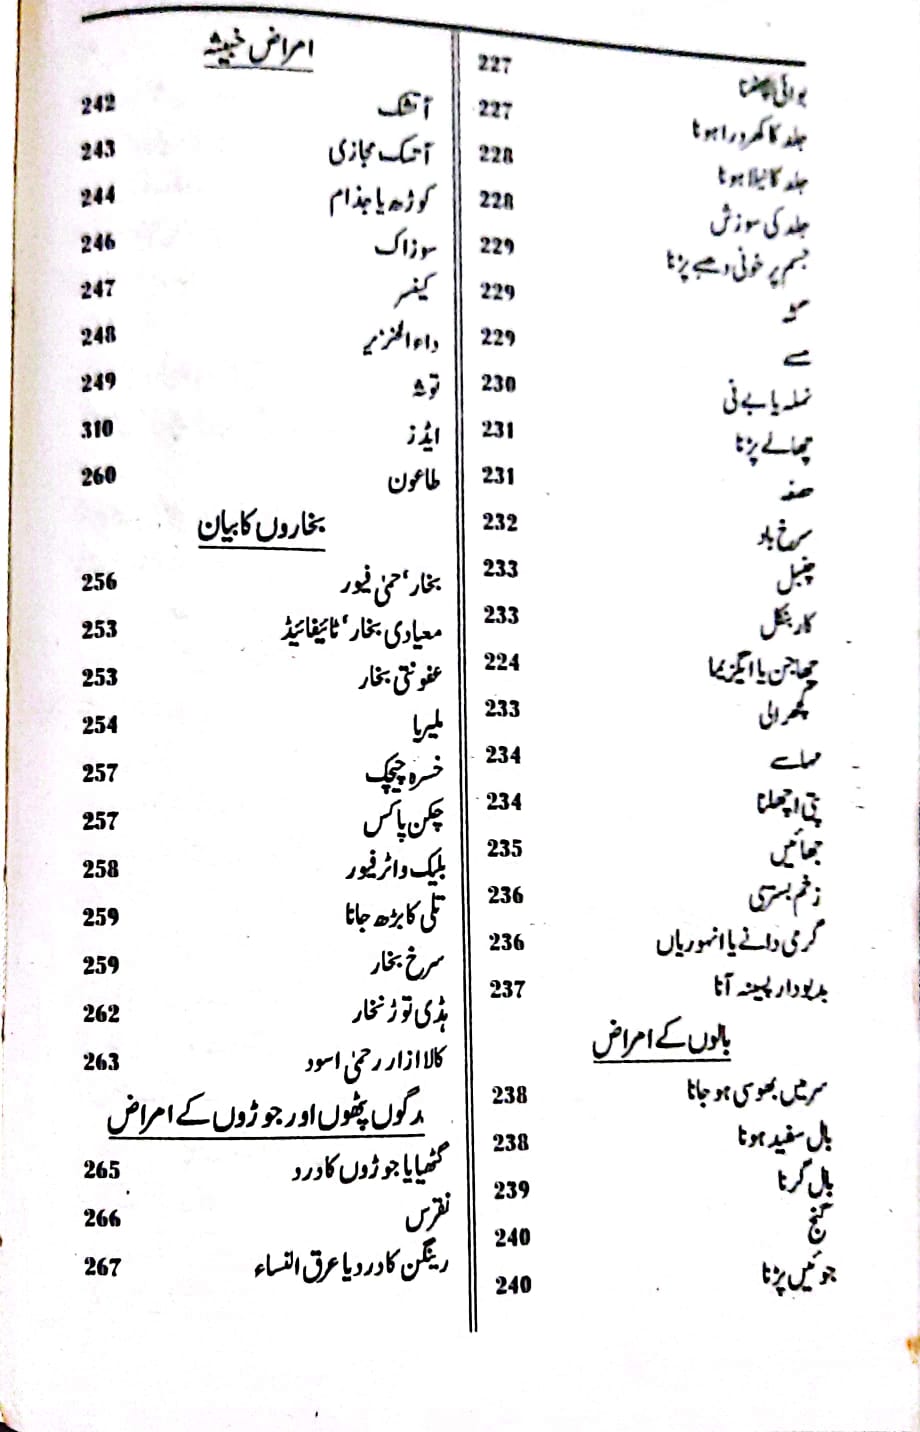 بوائی پھٹنا 227
جلد کا کھردرا ہونا 227
جلد کا نیلا ہونا 228
جلد کی سوزش 228
جسم پر خونی دھبے پڑنا 229
گٹہ 229
مسے 229
نملہ یا بے نی 230
چھالے پڑنا 231
صفہ 231
سرخ باد 232
چنبل 233
کاربنکل 233
چھاجن یا ایگزیما 224
گھرالی 233
مہاسے 234
پتی اچھلنا 234
جھائیں 235
زخم بستری 236
گرمی دانے یا انہوریاں 236
بدبودار پسینہ آنا 237
بالوں کے امراض
سر میں بھوسی ہو جانا 238
بال سفید ہونا 238
بال گرنا 239
گنج 240
جوئیں پڑنا 240
امراض خبیثہ
آتشک 242
آتشک مجازی 243
کوڑھ یا جذام 244
سوزاک 246
کینسر 247
داء الخنزیر 248
توثہ 249
ایڈز 310
طاعون 260
بخاروں کا بیان
بخار، حمیٰ فیور 256
معیادی بخار، ٹائیفائیڈ 253
عفونتی بخار 253
ملیریا 254
خسرہ چیچک 257
چکن پاکس 257
بلیک واٹر فیور 258
تلی کا بڑھ جانا 259
سرخ بخار 259
ہڈی توڑ بخار 262
کالا ازار رحمیٰ اسود 263
رگوں پٹھوں اور جوڑوں کے امراض
گٹھیا یا جوڑوں کا درد 265
نقرس 266
رینگن کا درد یا عرق النساء 267